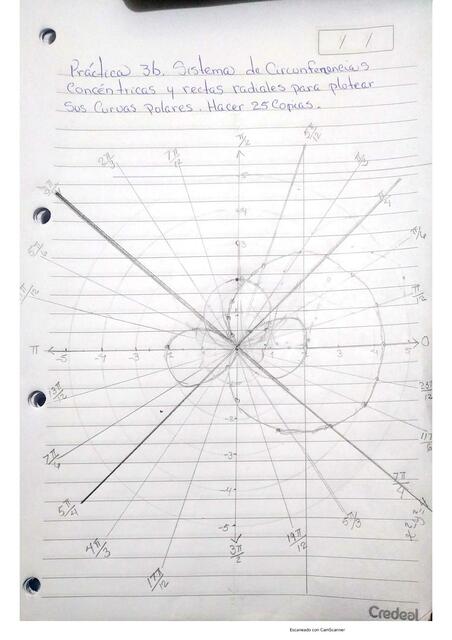 Práctica 3b. Sistema de Circunferencias
Concéntricas y rectas radiales para plotear
Sus Curvas polares. Hacer 25 Copias.
π/2
5π/12
7π/12
2π/3
π/3
3π/4
π/4
5π/6
π/6
π/12
π
0
-5
-4
-3
5
4
3
-2
-3
-4
-5
13π/12
23π/12
7π/6
11π/6
5π/4
7π/4
4π/3
5π/3
17π/12
3π/2
19π/12
Credeal
Escaneado con CamScanner